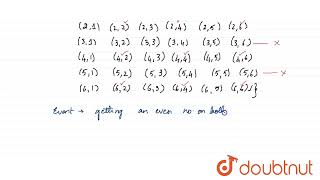 (2,1) (2,2) (2,3) (2,4) (2,5) (2,6)
(3,1) (3,2) (3,3) (3,4) (3,5) (3,6) — x
(4,1) (4,2) (4,3) (4,4) (4,5) (4,6)
(5,1) (5,2) (5,3) (5,4) (5,5) (5,6) — x
(6,1) (6,2) (6,3) (6,4) (6,5) (6,6)}
Event → getting an even no on both
doubtnut